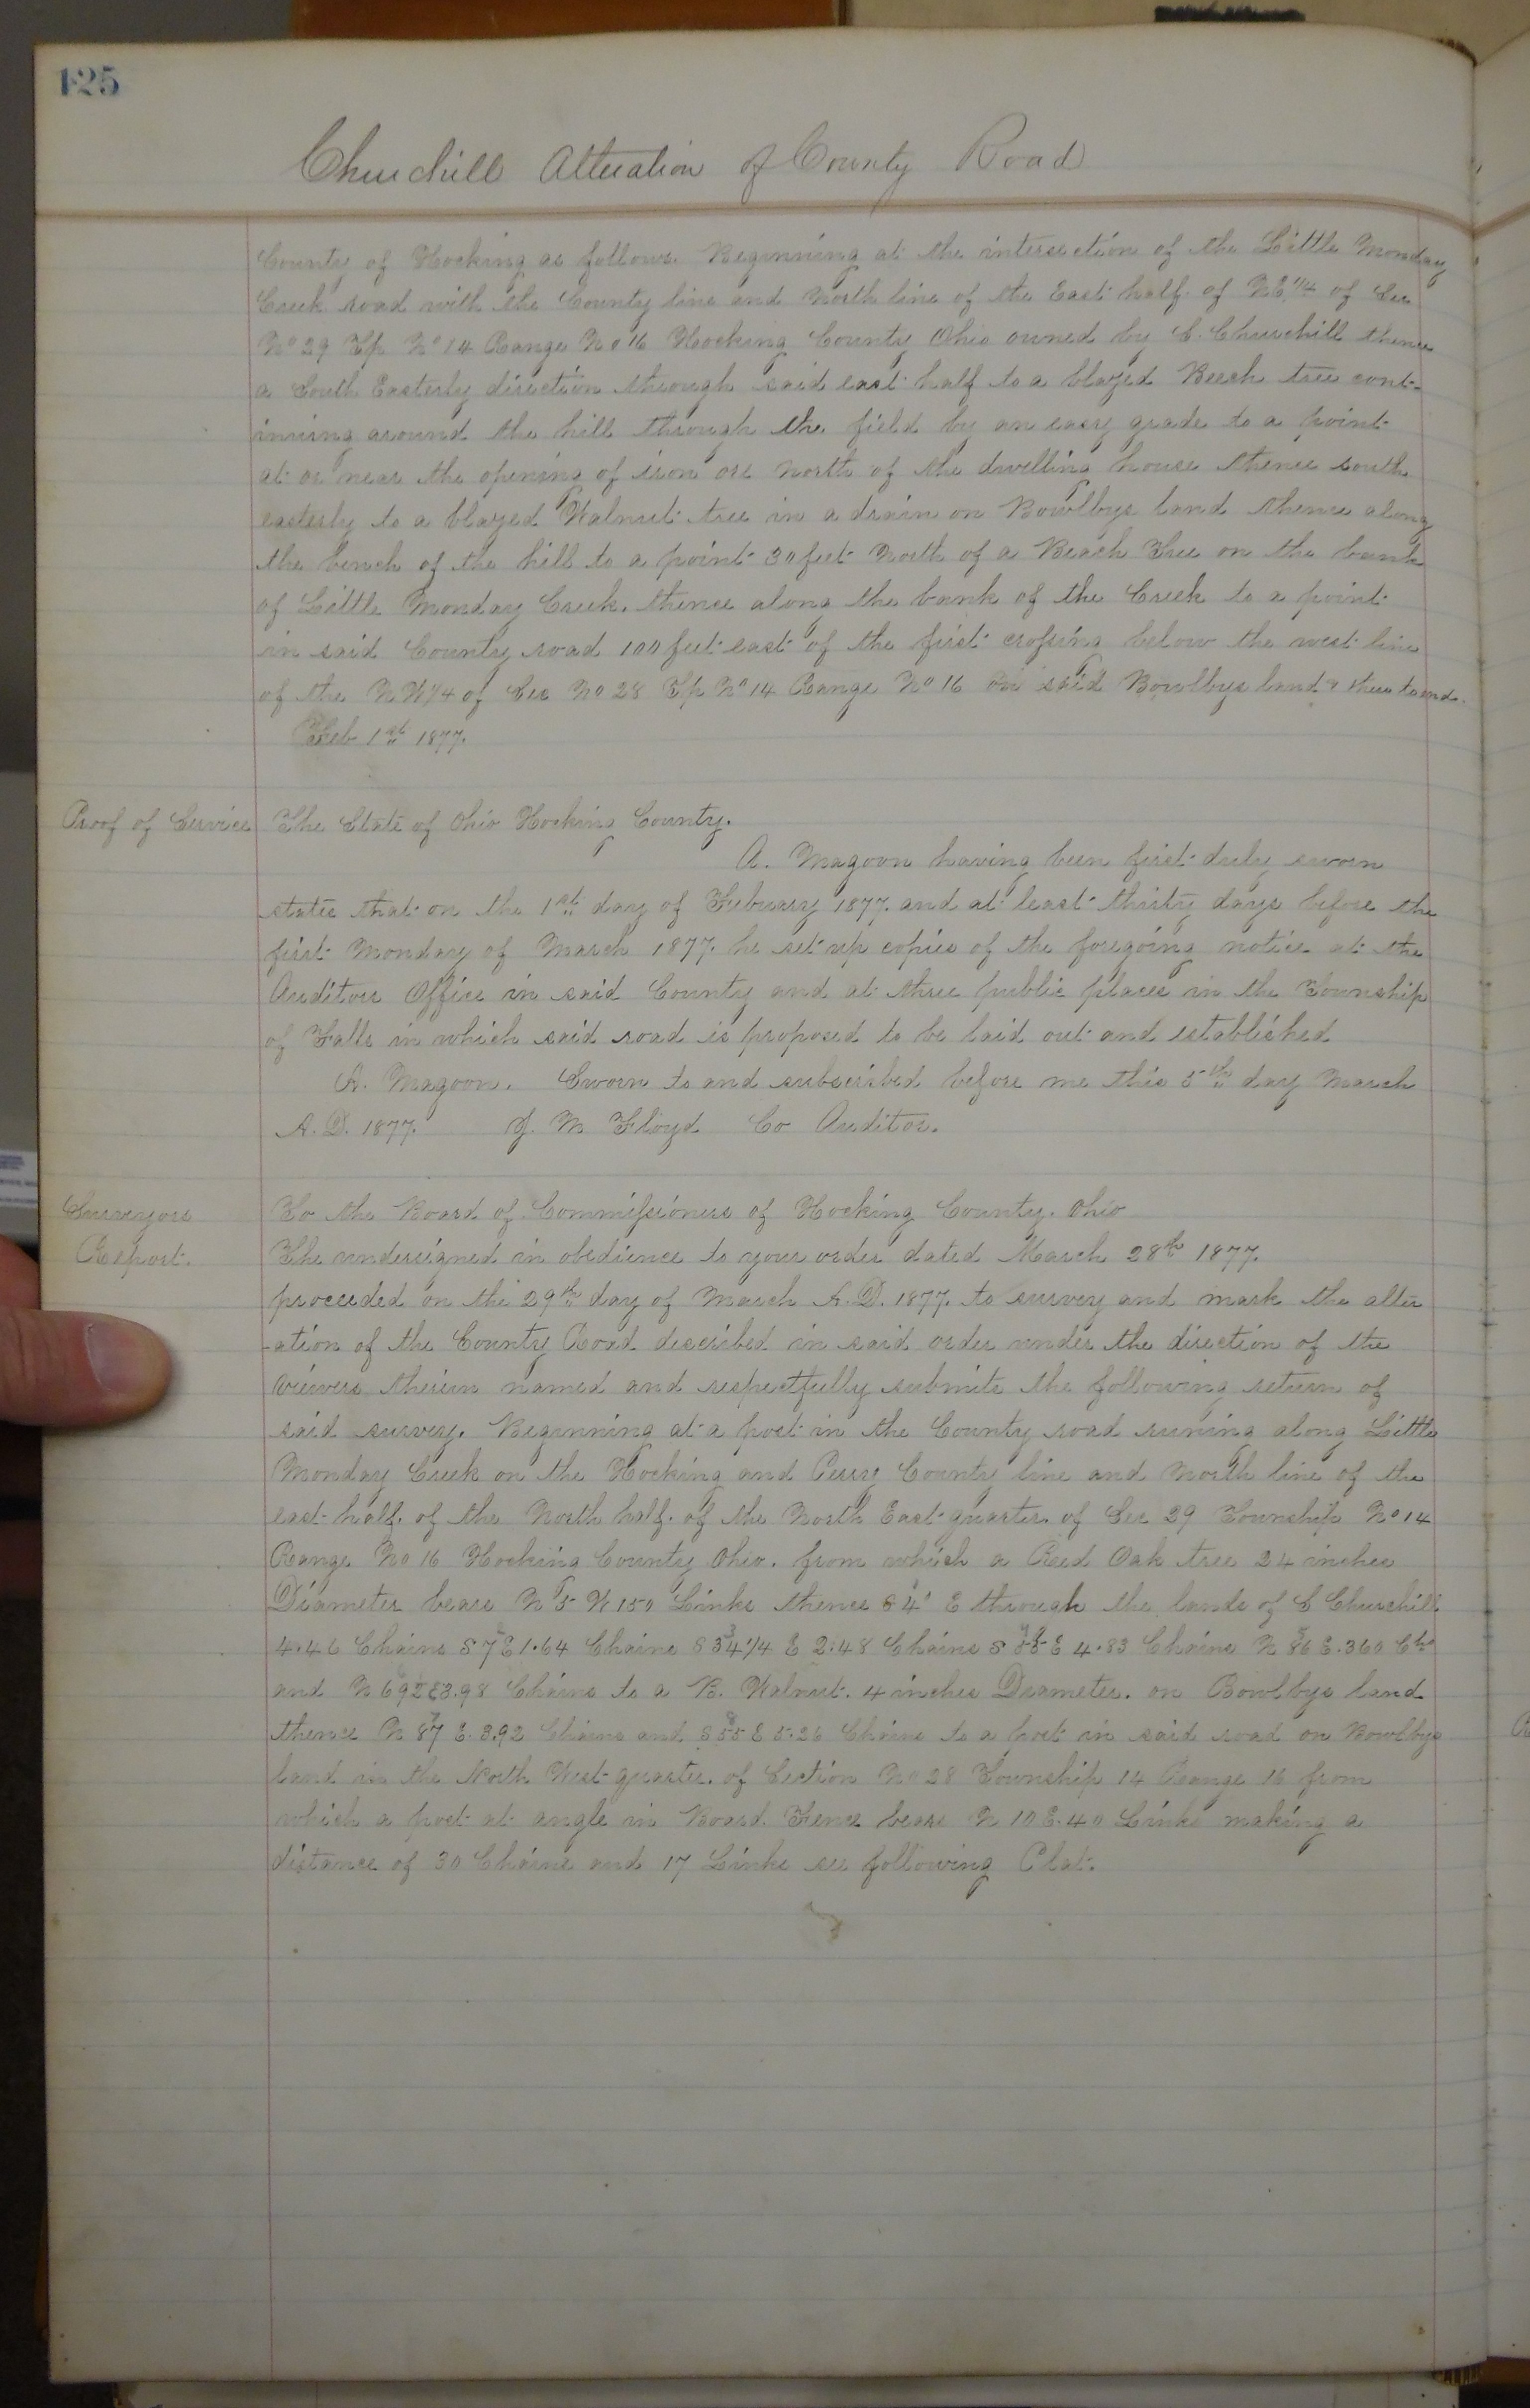 125
Churchill Alteration of County Road
County of Hocking as follows. Beginning at the intersection of the Little Monday
Creek road with the County line and North line of the East half of N.E. 1/4 of Sec
No 29 Tp No 14 Range No 16 Hocking County Ohio owned by C. Churchill thence
a South Easterly direction through said east half to a blazed Beech tree cont-
inuing around the hill through the field by an easy grade to a point
at or near the opening of iron ore North of the dwelling house thence south
easterly to a blazed Walnut tree in a drain on Bowlbys land thence along
the bench of the hill to a point 30 feet North of a Beach Tree on the bank
of Little Monday Creek. thence along the bank of the Creek to a point
in said County road 100 feet east of the first crossing below the west line
of the N W 1/4 of Sec No 28 Tp No 14 Range No 16 on said Bowlbys land & there to end.
Feb 1st 1877.
Proof of Service The State of Ohio Hocking County.
A. Magoon having been first duly sworn
states that on the 1st day of Febuary 1877. and at least thirty days before the
first Monday of March 1877. he set up copies of the foregoing notice at the
Auditors Office in said County and at three public places in the Township
of Falls in which said road is proposed to be laid out and established
A. Magoon. Sworn to and subscribed before me this 5th day March
A.D. 1877. J. M Floyd Co Auditor.
Surveyors To the Board of Commissioners of Hocking County. Ohio
Report. The undersigned in obedience to your order dated March 28th 1877.
proceeded on the 29th day of March A.D. 1877. to survey and mark the alter
-ation of the County Road described in said order under the direction of the
viewers therein named and respectfully submits the following return of
said survey. Beginning at a post in the County road runing along Little
Monday Creek on the Hocking and Perry County line and North line of the
east half. of the North half. of the North East quarter. of Sec 29 Township No 14
Range No 16 Hocking County Ohio. from which a Red Oak tree 24 inches
Diameter bears N 5 W 150 Links thence S 4° E through the lands of C Churchill
4.46 Chains S 7 E 1.64 Chains S 34 1/4 E 2.48 Chains S E 4.83 Chains N 86 E. 360 Chs
and N E 3.98 Chains to a B. Walnut. 4 inches Diameter. on Bowlbys land
thence N 87 E. 3.92 Chains and S 55 E 5.26 Chains to a post in said road on Bowlbys
land in the North West quarter. of Section No 28 Township 14 Range 16 from
which a post at angle in Board Fence bears N 10 E. 40 Links making a
distance of 30 Chains and 17 Links see following Plat.